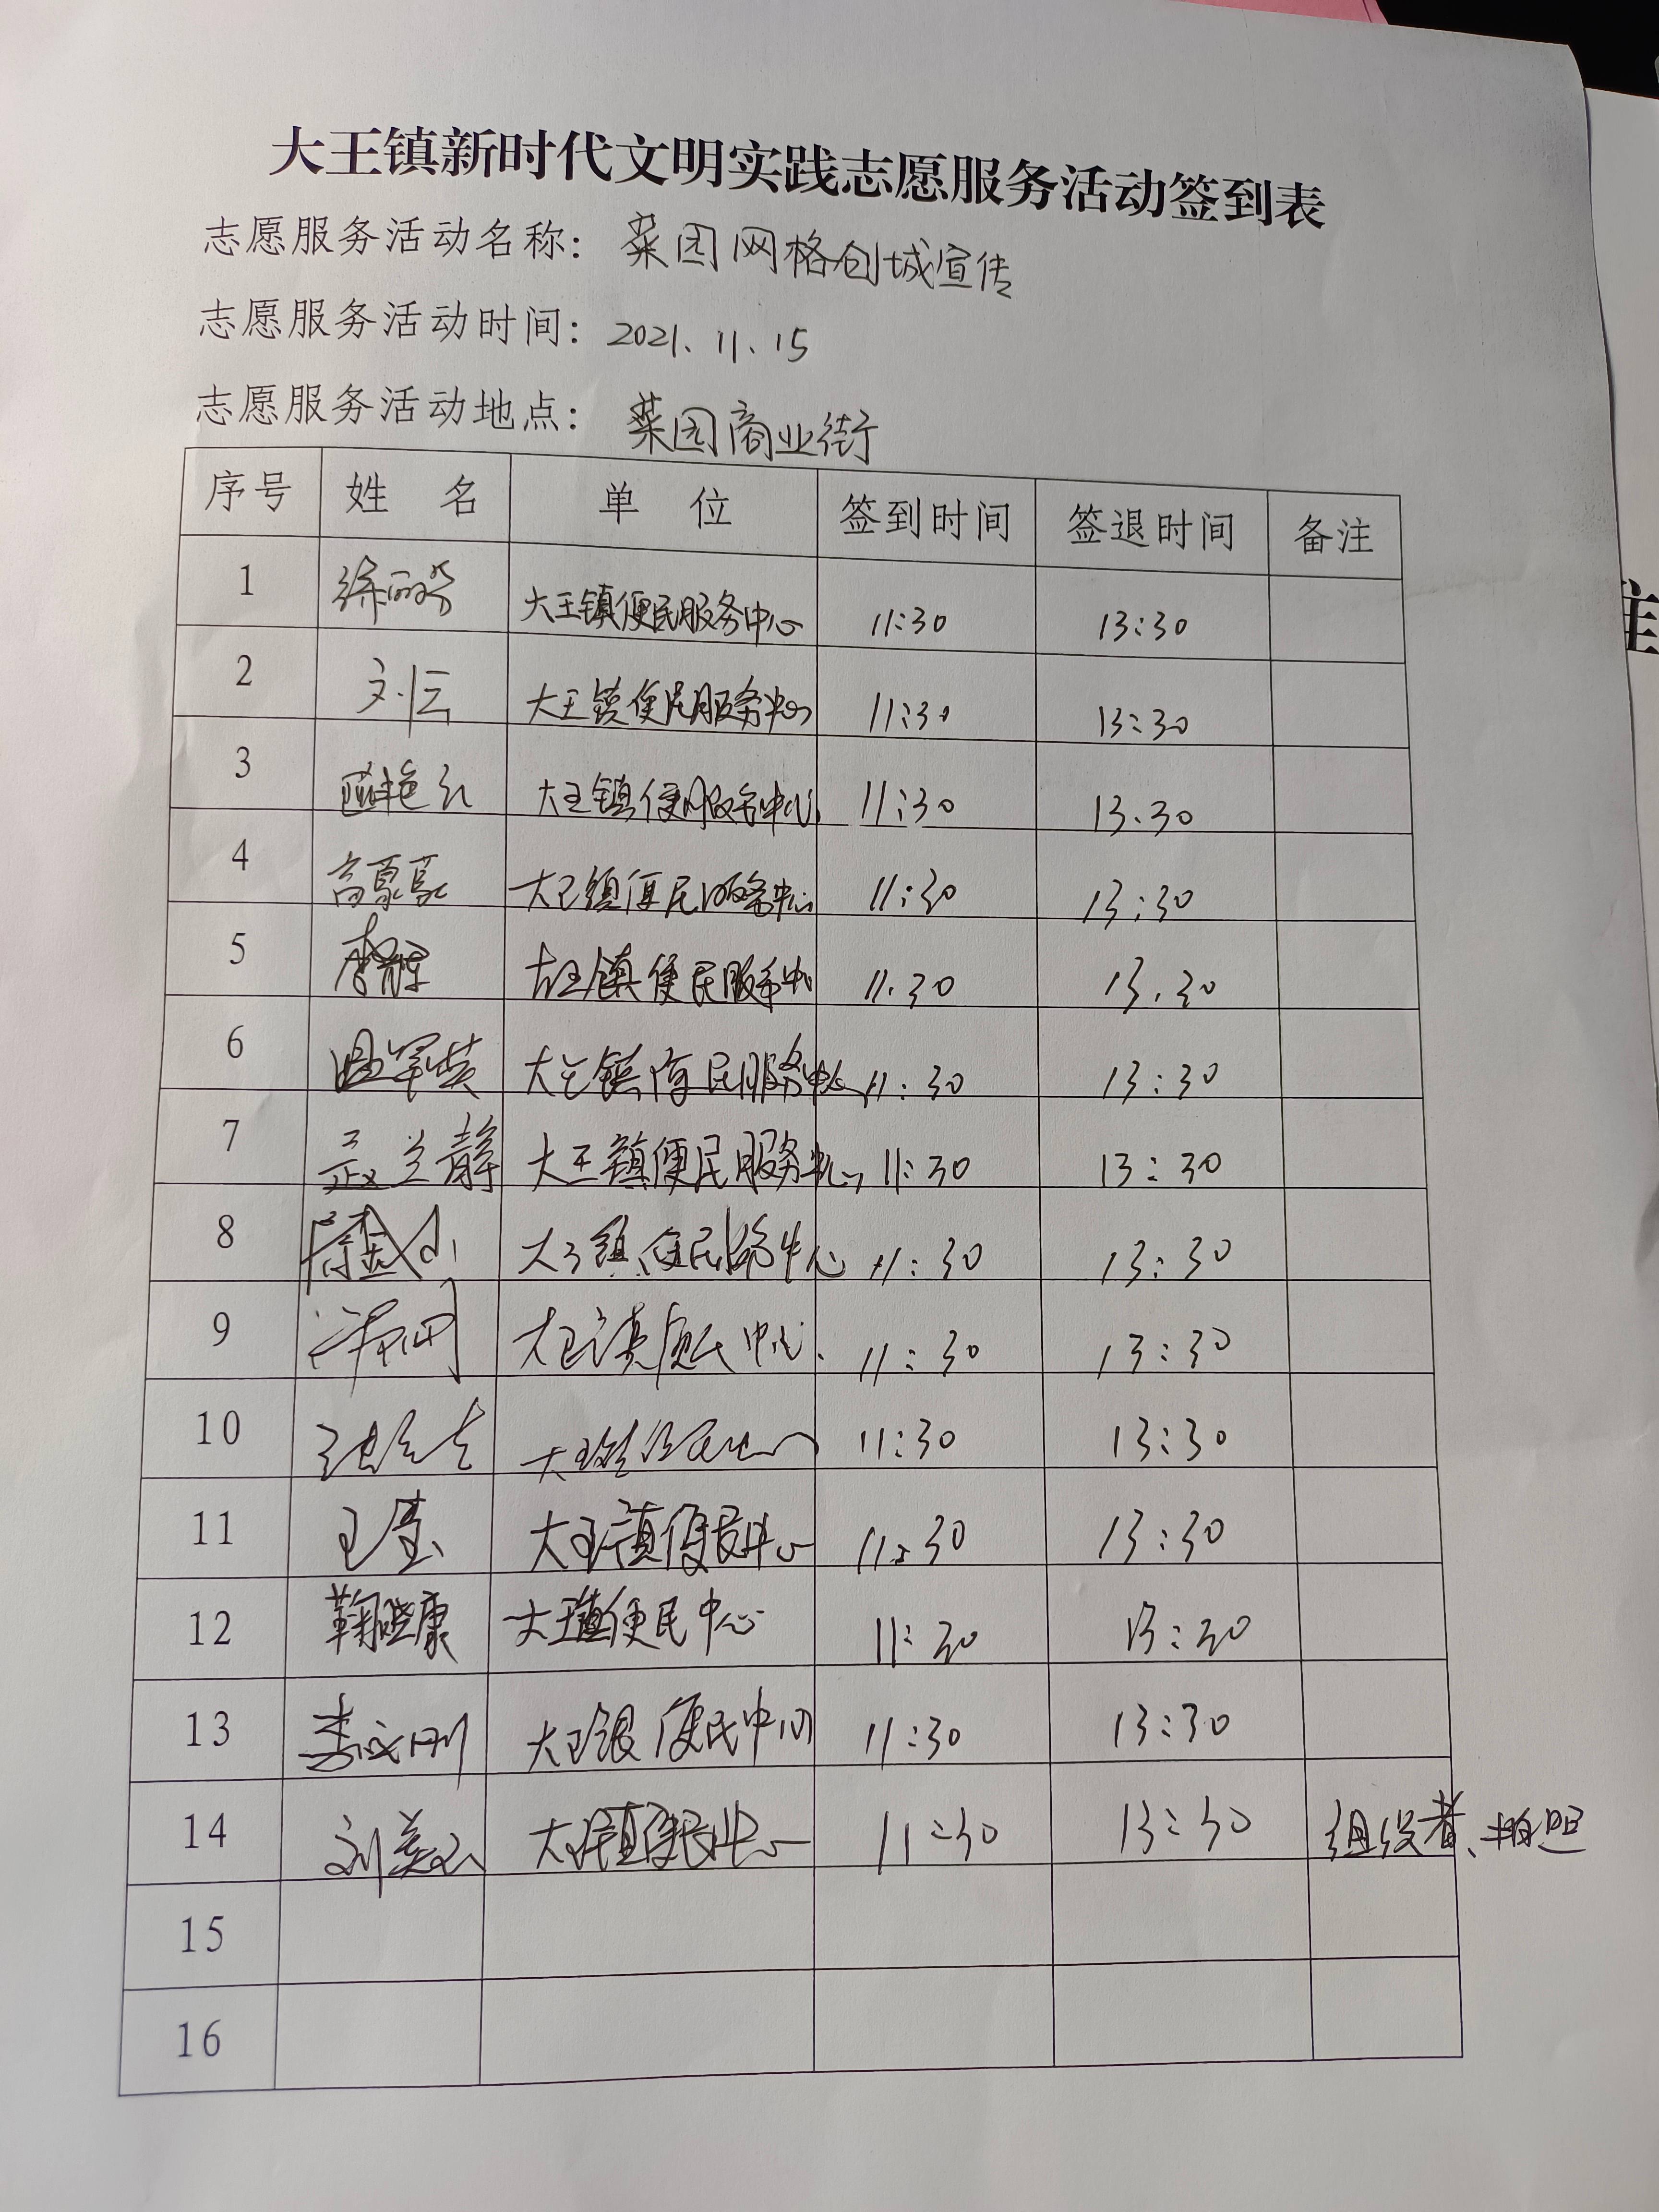 大王镇新时代文明实践志愿服务活动签到表
志愿服务活动名称: 菜园网格创城宣传
志愿服务活动时间: 2021.11.15
志愿服务活动地点: 菜园商业街
序号 姓名 单位 签到时间 签退时间 备注
1 大王镇便民服务中心 11:30 13:30
2 刘云 大王镇便民服务中心 11:30 13:30
3 大王镇便民服务中心 11:30 13.30
4 大王镇便民服务中心 11:30 13:30
5 大王镇便民服务中心 11.30 13.30
6 大王镇便民服务中心 11:30 13:30
7 兰静 大王镇便民服务中心 11:30 13:30
8 大王镇便民服务中心 11:30 13:30
9 大王镇便民中心 11:30 13:30
10 11:30 13:30
11 大王镇便民中心 11:30 13:30
12 鞠晓康 大王镇便民中心 11:30 13:30
13 李成刚 大王镇便民中心 11:30 13:30
14 大王镇便民中心 11:30 13:30 组织者、拍照
15
16